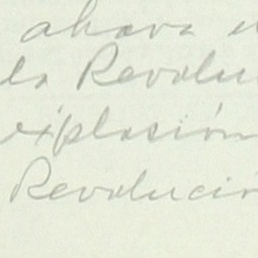 ahora e
la Revolu
explosión
Revolució